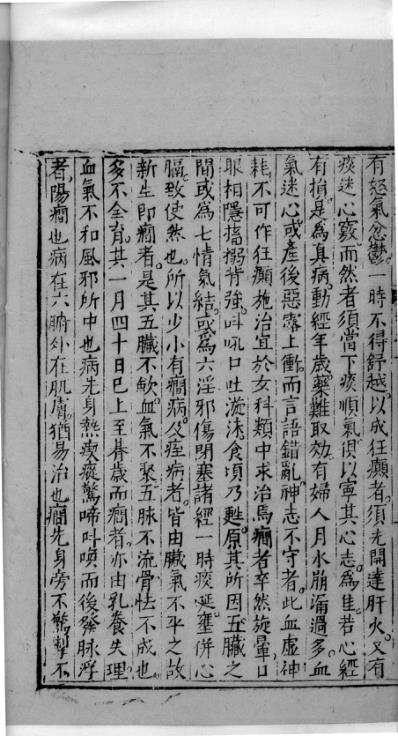 有怒氣忿鬱一時不得舒越以成狂癲者須先開達肝火又有
痰迷心竅而然者須當下痰順氣須以寧其心志為佳若心經
有損是為真病動經年歲藥難取効有婦人月水崩漏過多血
氣迷心或產後惡露上衝而言語錯亂神志不守者此血虛神
耗不可作狂癲施治宜於女科類中求治焉癇者卒然旋暈口
眼相隱搐搦背強叫吼口吐涎沫食頃乃甦原其所因五臟之
間或為七情氣結或為六淫邪傷閉塞諸經一時痰涎壅併心
膈致使然也所以少小有癇病及痓病者皆由臟氣不平之故
新生即癇者是其五臟不歛血氣不聚五脉不流骨怯不成也
多不全育其一月四十日巳上至朞歲而癇者亦由乳養失理
血氣不和風邪所中也病先身熱瘈瘲驚啼叫喚而後發脉浮
者陽癇也病在六腑外在肌膚猶易治也癇先身旁不驚掣不